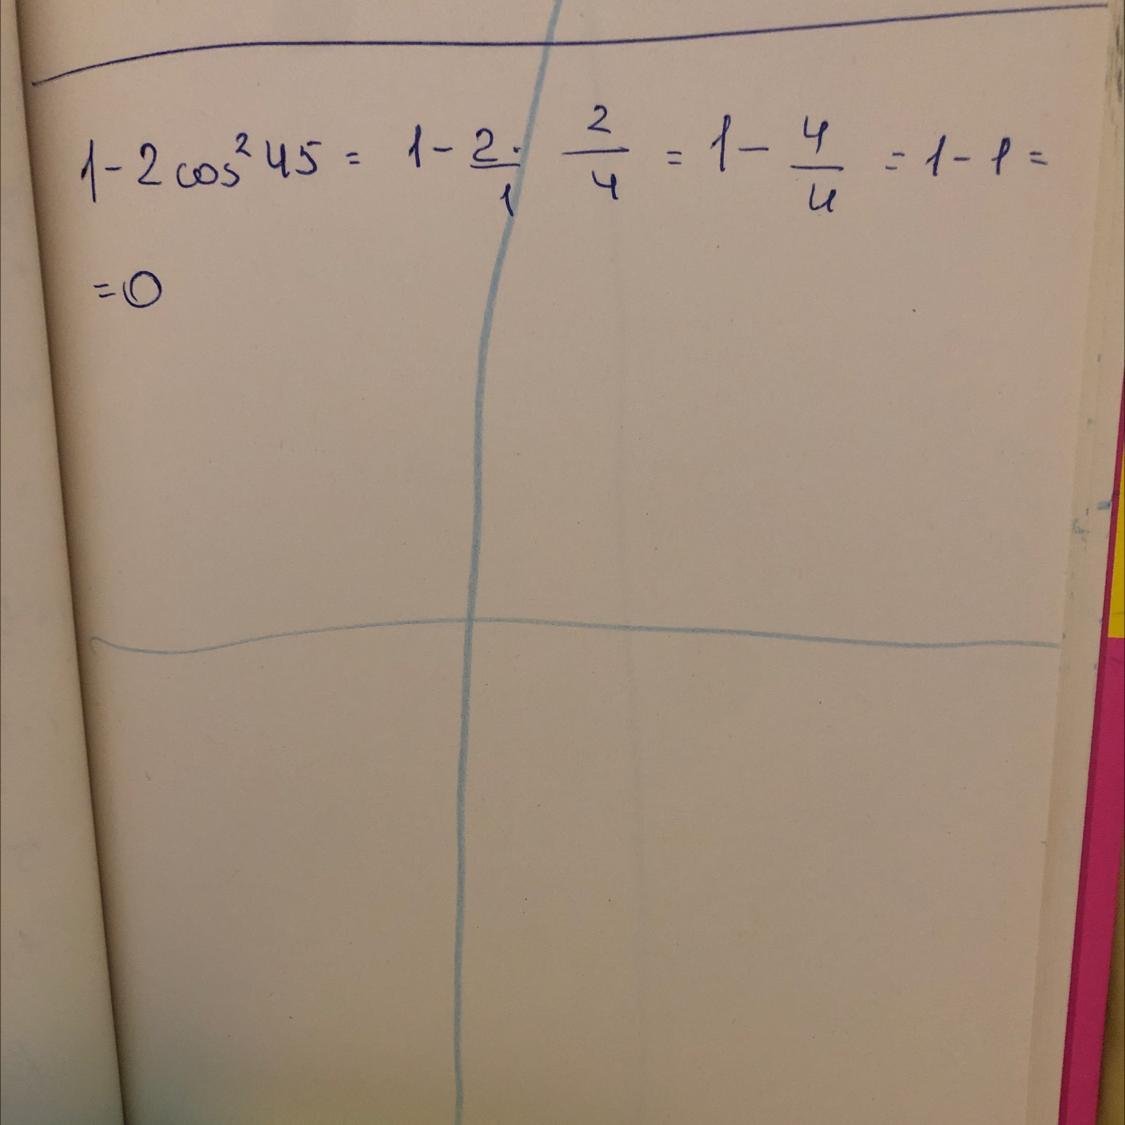 1-2cos²45 = 1-2/1·2/4 = 1-4/4 = 1-1=
=0